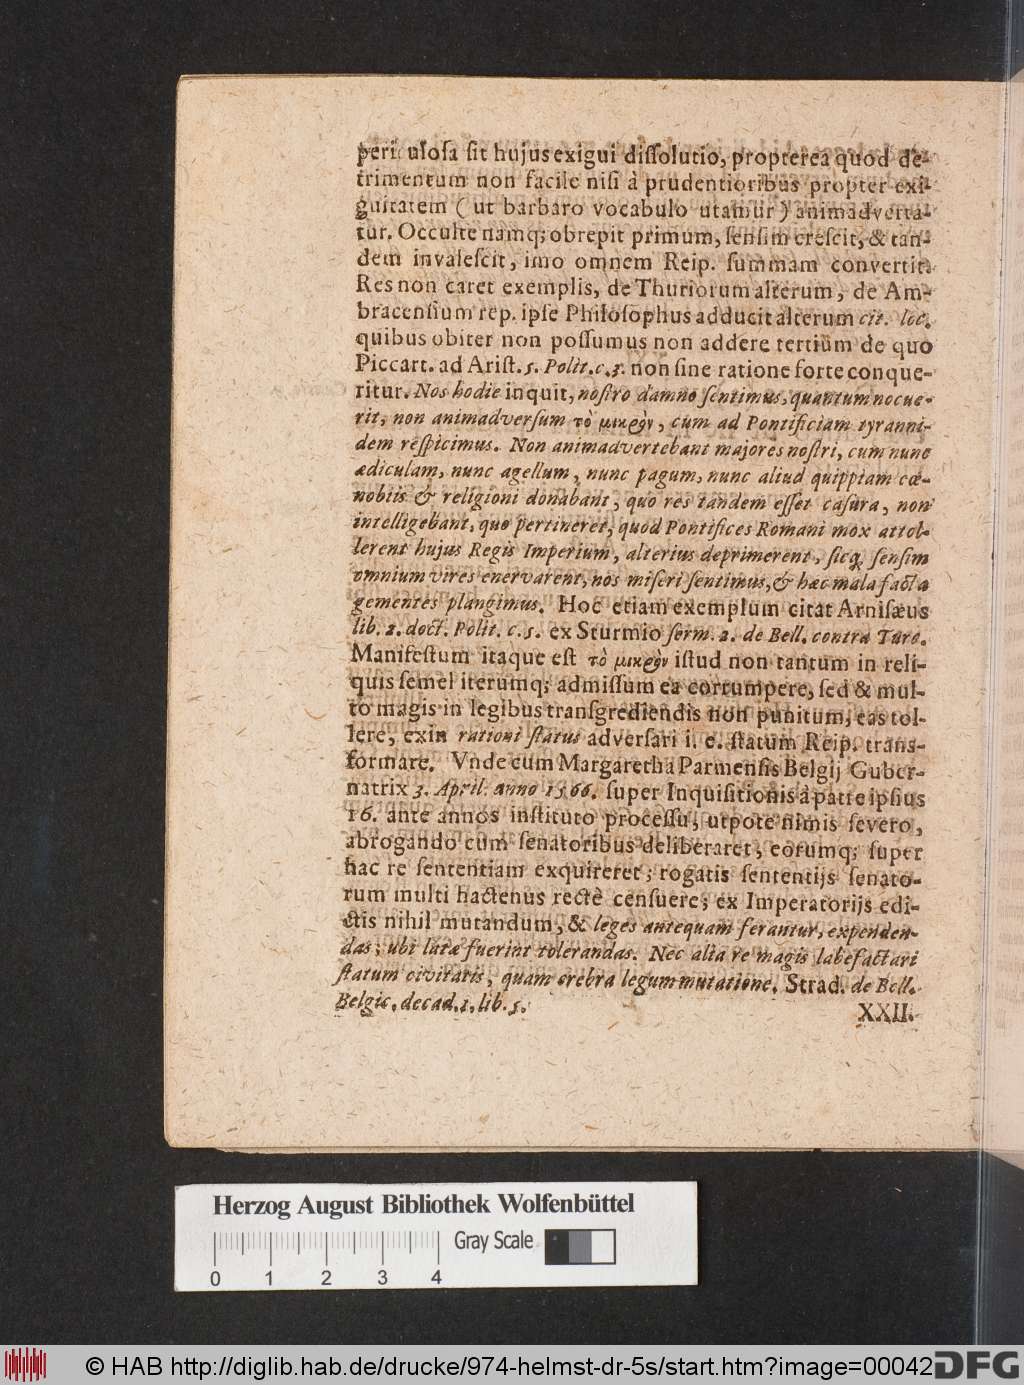 periculosa sit hujus exigui dissolutio, propterea quod de-
trimentum non facile nisi à prudentioribus propter exi-
guitatem (ut barbaro vocabulo utamur) animadverta-
tur. Occulte namq; obrepit primum, sensim crescit, & tan-
dem invalescit, imo omnem Reip. summam convertit.
Res non caret exemplis, de Thuriorum alterum, de Am-
bracensium rep. ipse Philosophus adducit alterum cit. loc.
quibus obiter non possumus non addere tertium de quo
Piccart. ad Arist. 5. Polit. c. 3. non sine ratione forte conque-
ritur. Nos hodie inquit, nostro damno sentimus, quantum nocue-
rit, non animadversum τὸ μικρὸν, cum ad Pontificiam tyranni-
dem respicimus. Non animadvertebant majores nostri, cum nunc
ædiculam, nunc agellum, nunc pagum, nunc aliud quippiam cœ-
nobiis & religioni donabant, quo res tandem esset casura, non
intelligebant, quo pertineret, quod Pontifices Romani mox attol-
lerent hujus Regis Imperium, alterius deprimerent, sicq; sensim
omnium vires enervarent, nos miseri sentimus, & hæc mala facta
gementes plangimus. Hoc etiam exemplum citat Arnisæus
lib. 2. doct. Polit. c. 5. ex Sturmio serm. 2. de Bell. contra Turc.
Manifestum itaque est τὸ μικρὸν istud non tantum in reli-
quis semel iterumq; admissum ea corrumpere, sed & mul-
to magis in legibus transgrediendis non punitum, eas tol-
lere, exin rationi status adversari i. e. statum Reip. trans-
formare. Vnde cum Margaretha Parmensis Belgij Guber-
natrix 3. April. anno 1566. super Inquisitionis à patre ipsius
16. ante annos instituto processu, utpote nimis severo,
abrogando cum senatoribus deliberaret, eorumq; super
hac re sententiam exquireret; rogatis sententijs senato-
rum multi hactenus rectè censuere; ex Imperatorijs edi-
ctis nihil mutandum, & leges antequam ferantur, expenden-
das; ubi latæ fuerint tolerandas. Nec alia re magis labefactari
statum civitatis, quam crebra legum mutatione. Strad. de Bell.
Belgic. decad. 1. lib. 5.
XXII.
Herzog August Bibliothek Wolfenbüttel
Gray Scale
0 1 2 3 4
© HAB http://diglib.hab.de/drucke/974-helmst-dr-5s/start.htm?image=00042
DFG